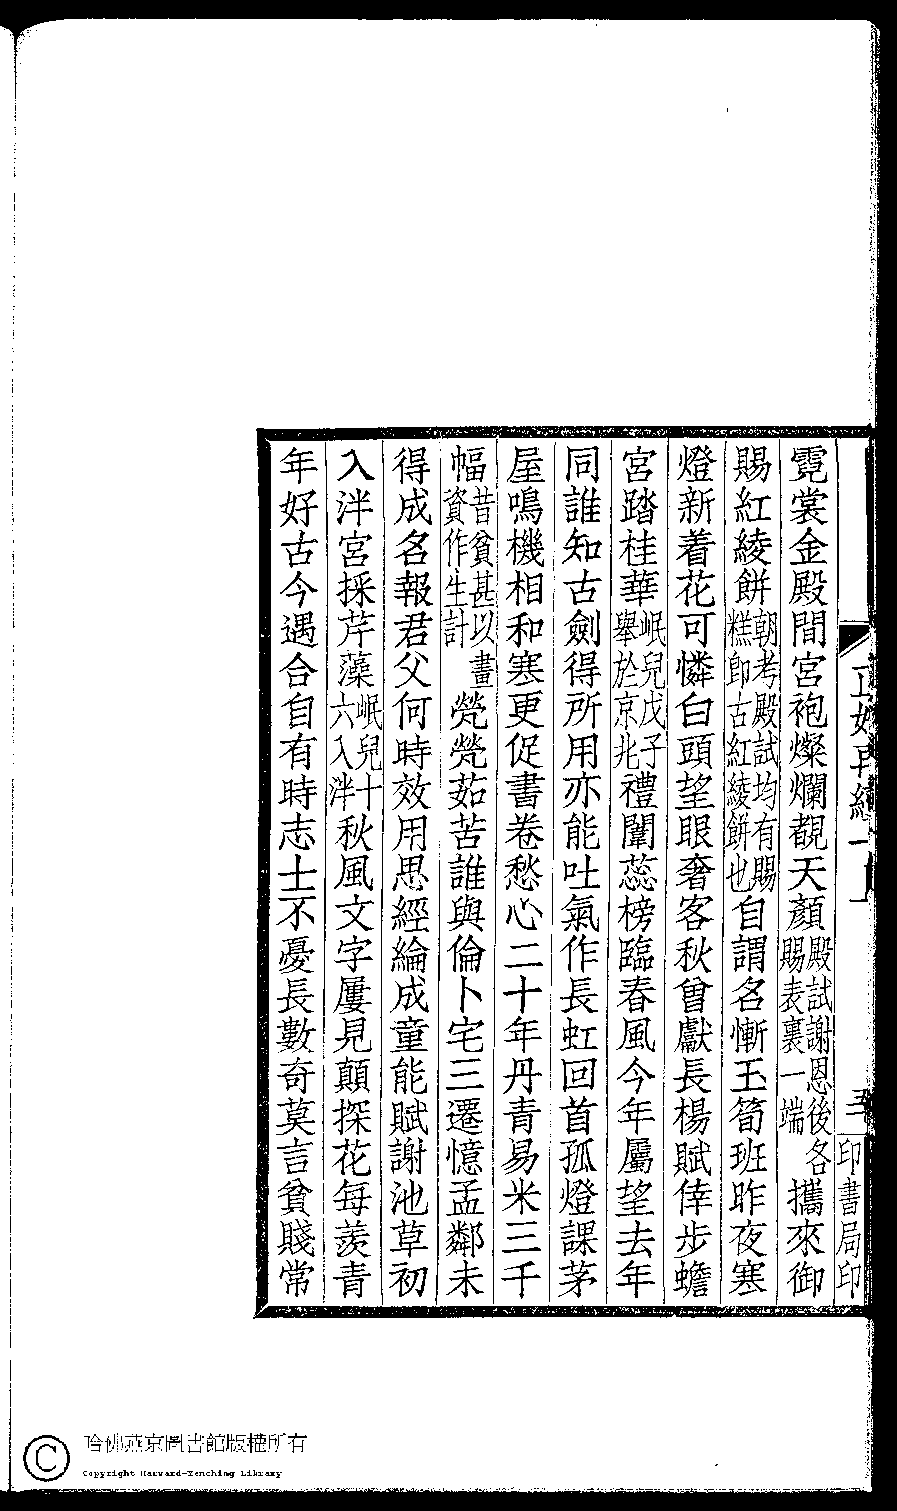 霓裳金殿間宮袍燦爛覩天顏殿試謝恩後各賜表裏一端攜來御
賜紅綾餅朝考殿試均有賜糕卽古紅綾餅也自謂名慚玉筍班昨夜寒
燈新着花可憐白頭望眼奢客秋曾獻長楊賦倖步蟾
宮踏桂華岷兒戊子舉於京兆禮闈蕊榜臨春風今年屬望去年
同誰知古劍得所用亦能吐氣作長虹回首孤燈課茅
屋鳴機相和寒更促書卷愁心二十年丹青易米三千
幅昔貧甚以畫資作生計煢煢茹苦誰與倫卜宅三遷憶孟鄰未
得成名報君父何時效用思經綸成童能賦謝池草初
入泮宮採芹藻岷兒十六入泮秋風文字屢見顛探花每羨青
年好古今遇合自有時志士不憂長數奇莫言貧賤常
正始再續一
五
印書局印
哈佛燕京圖書館版權所有
Copyright Harvard-Yenching Library